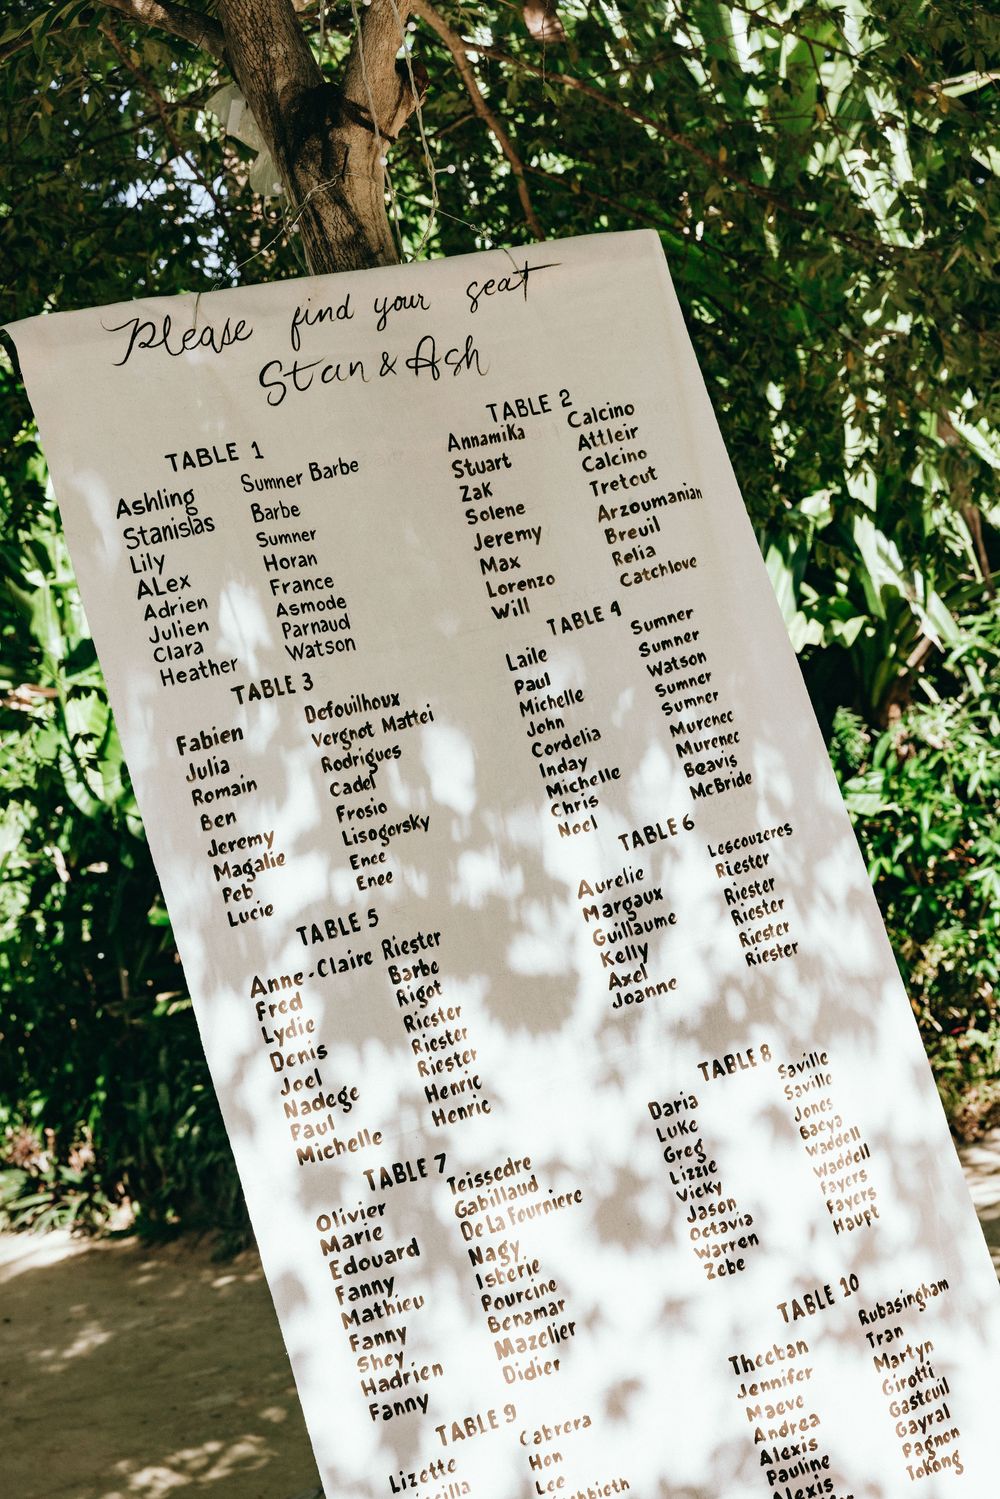 Please find your seat
Stan & Ash
TABLE 1
Ashling Sumner Barbe
Stanislas Barbe
Lily Sumner
ALex Horan
Adrien France
Julien Asmode
Clara Parnaud
Heather Watson
TABLE 2
Annamika Calcino
Stuart Attleir
Zak Calcino
Solene Tretout
Jeremy Arzoumanian
Max Breuil
Lorenzo Relia
Will Catchlove
TABLE 3
Fabien Defouilhoux
Julia Vergnot Mattei
Romain Rodrigues
Ben Cadel
Jeremy Frosio
Magalie Lisogorsky
Peb Enee
Lucie Enee
TABLE 4
Laile Sumner
Paul Sumner
Michelle Watson
John Sumner
Cordelia Sumner
Inday Murenec
Michelle Murenec
Chris Beavis
Noel McBride
TABLE 5
Anne-Claire Riester
Fred Barbe
Lydie Rigot
Denis Riester
Joel Riester
Nadege Riester
Paul Henric
Michelle Henric
TABLE 6
Aurelie Lescouzeres
Margaux Riester
Guillaume Riester
Kelly Riester
Axel Riester
Joanne Riester
TABLE 7
Olivier Teissedre
Marie Gabillaud
Edouard De La Fourniere
Fanny Nagy
Mathieu Isberie
Fanny Pourcine
Shey Benamar
Hadrien Mazelier
Fanny Didier
TABLE 8
Daria Saville
Luke Saville
Greg Jones
Lizzie Bacya
Vicky Waddell
Jason Waddell
Octavia Fayers
Warren Fayers
Zebe Haupt
TABLE 9
Lizette Cabrera
Hon
Lee
TABLE 10
Theeban Rubasingham
Jennifer Tran
Maeve Martyn
Andrea Girotti
Alexis Gasteuil
Pauline Gayral
Alexis Pagnon
Tokong